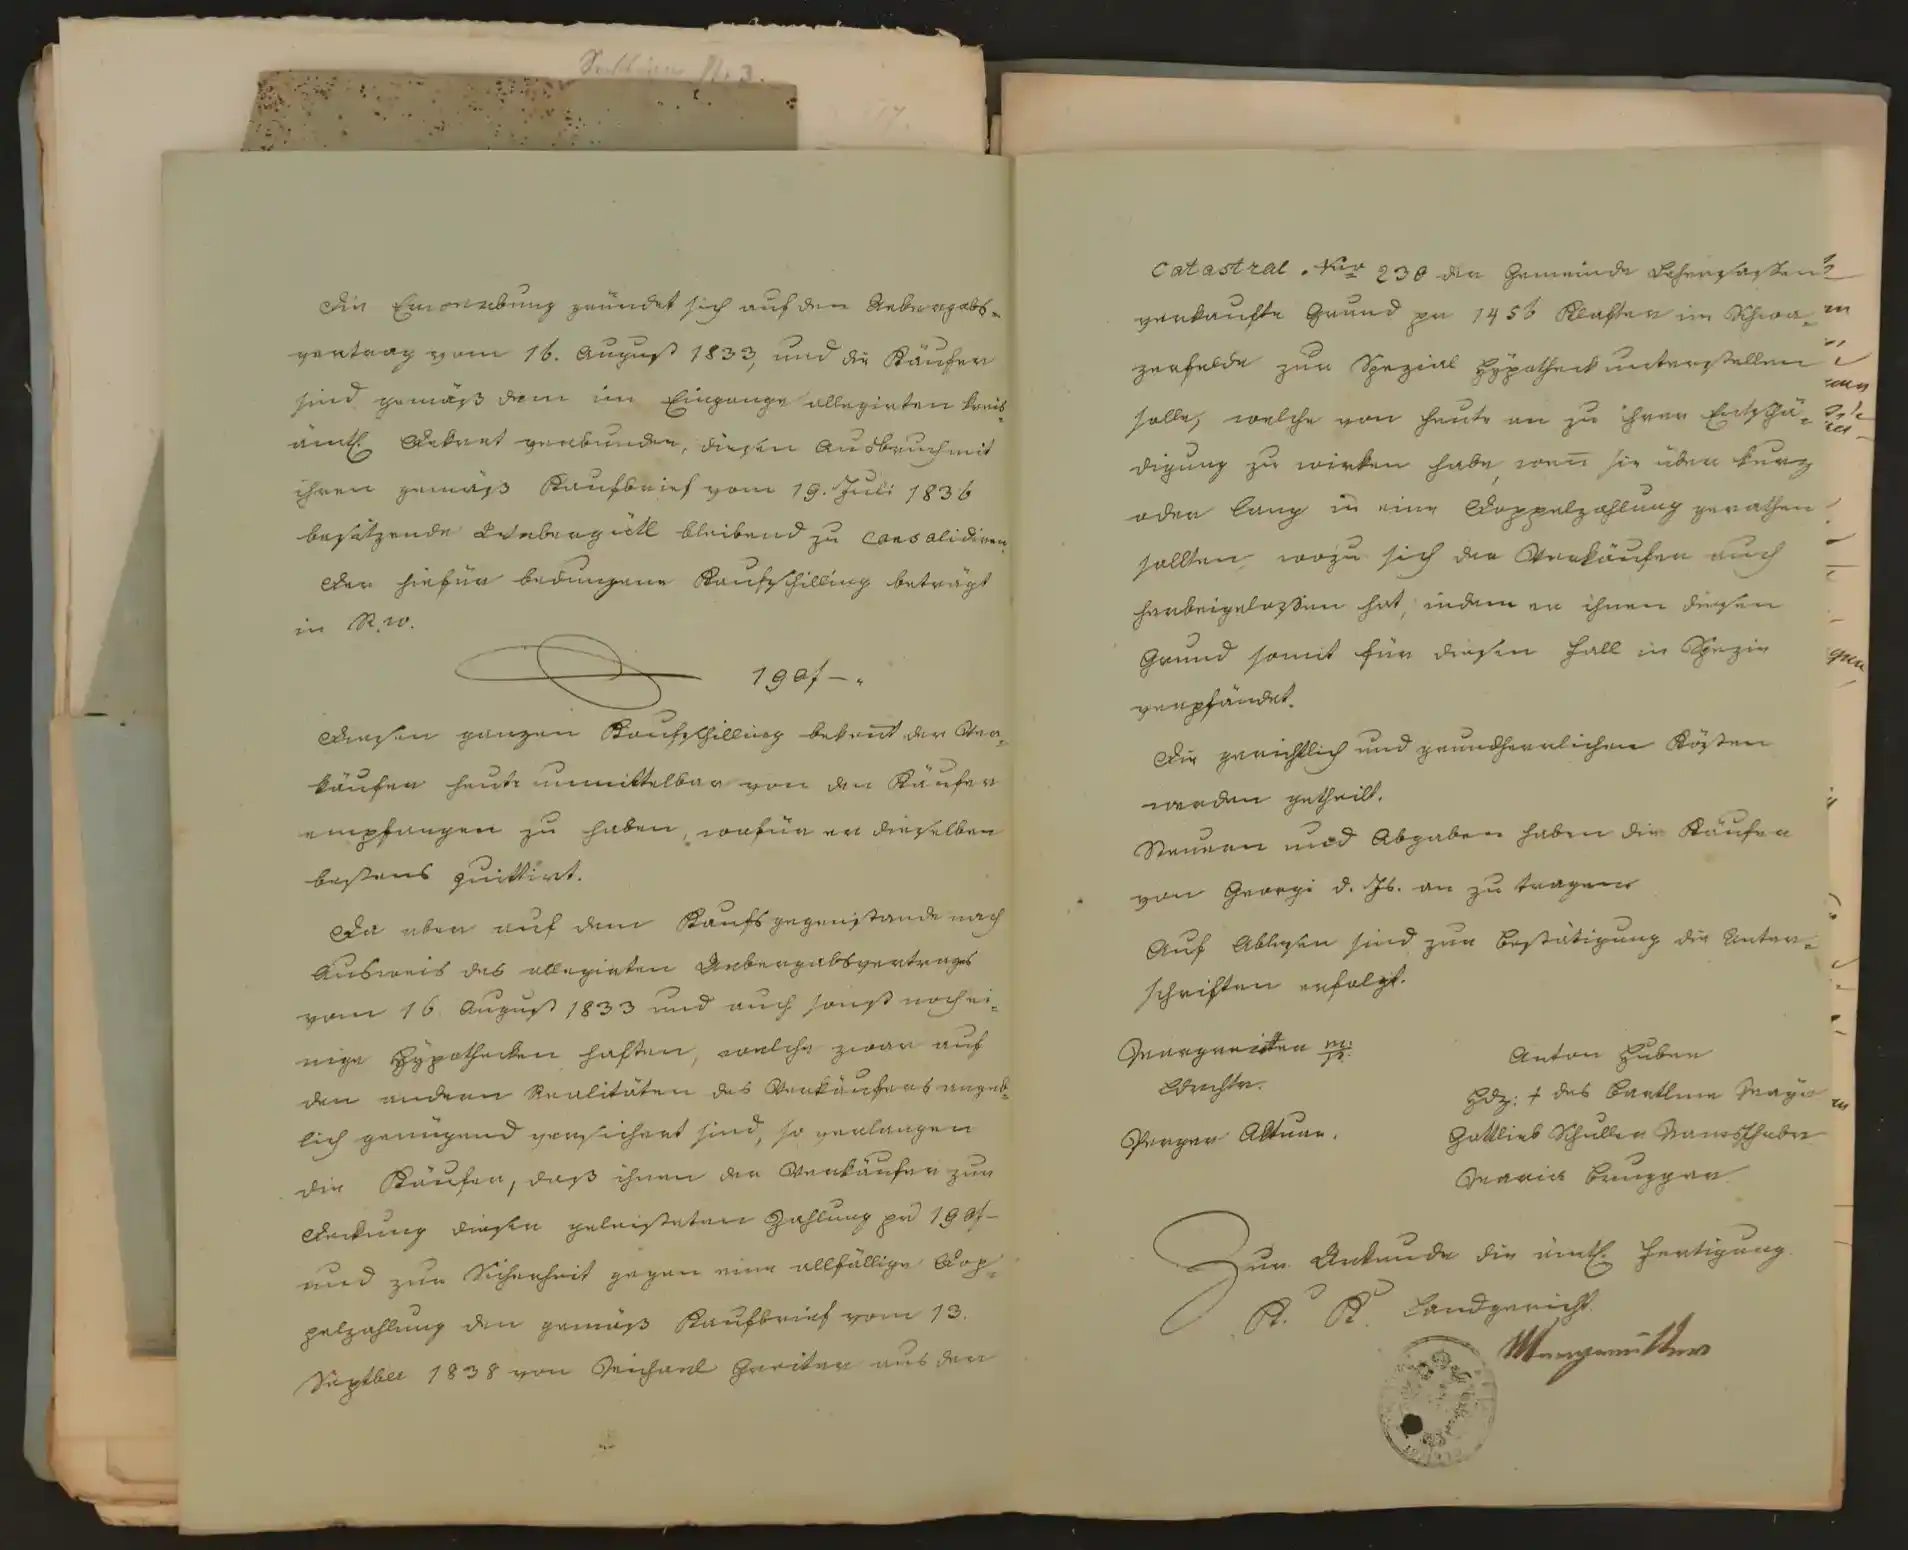 Die Erwerbung gründet sich auf den Uebergabs-
vertrag vom 16. August 1833, und die Käufer
sind gemäß dem im Eingange allegirten kreis-
ämtl. Dekret verbunden, diesen Ausbruch mit
ihren gemäß Kaufbrief vom 19. Juli 1836
besitzende Webergütl bleibend zu consolidiren.
Der hiefür bedungene Kaufschilling beträgt
in R.W.
190f —.
Diesen ganzen Kaufschilling bekent der Ver-
käufer heute unmittelbar von den Käufer
empfangen zu haben, wofür er dieselben
bestens quittirt.
Da aber auf dem Kaufsgegenstande nach
Ausweis des allegirten Uebergabsvertrages
vom 16 August 1833 und auch sonst noch ei-
nige Hÿpotheken haften, welche zwar auf
den andern Realitäten des Verkäufers angeb-
lich genügend versichert sind, so verlangen
die Käufer, daß ihnen der Verkäufer zur
Deckung dieser geleisteten Zahlung pr 190f—
und zur Sicherheit gegen eine allfällige Dop-
pelzahlung den gemäß Kaufbrief vom 13.
Septber 1838 von Michael Greiter aus der
Catastral. Nro 238 der Gemeinde
verkaufte Grund pr 1456 Klafter im Schwa-
zerfelde zur Spezial Hÿpotheck unterstellen
solle, welche von heute an zu ihrer Entschä-
digung zu wirken habe, wen sie über kurz
oder lang in eine Doppelzahlung gerathen
sollten, wozu sich der Verkäufer auch
herbeigelassen hat, indem er ihnen diesen
Grund somit für diesen Fall in Spezie
verpfändet.
Die gerichtlich und grundherrlichen Kösten
werden getheilt.
Steuern und Abgaben haben die Käufer
von Georgi d. Js. an zu tragen
Auf Ablesen sind zur Bestätigung die Unter-
schriften erfolgt.
Margreitter m/p.
Ldrchtr.
Perger Aktuar.
Anton Huber
Hdz: + des Bartlme Mayr
Gottlieb Schuller Namsschrbr
Maria Brugger
Zur Urkunde die ämtl. Fertigung.
K. K. Landgericht.
Margreitter